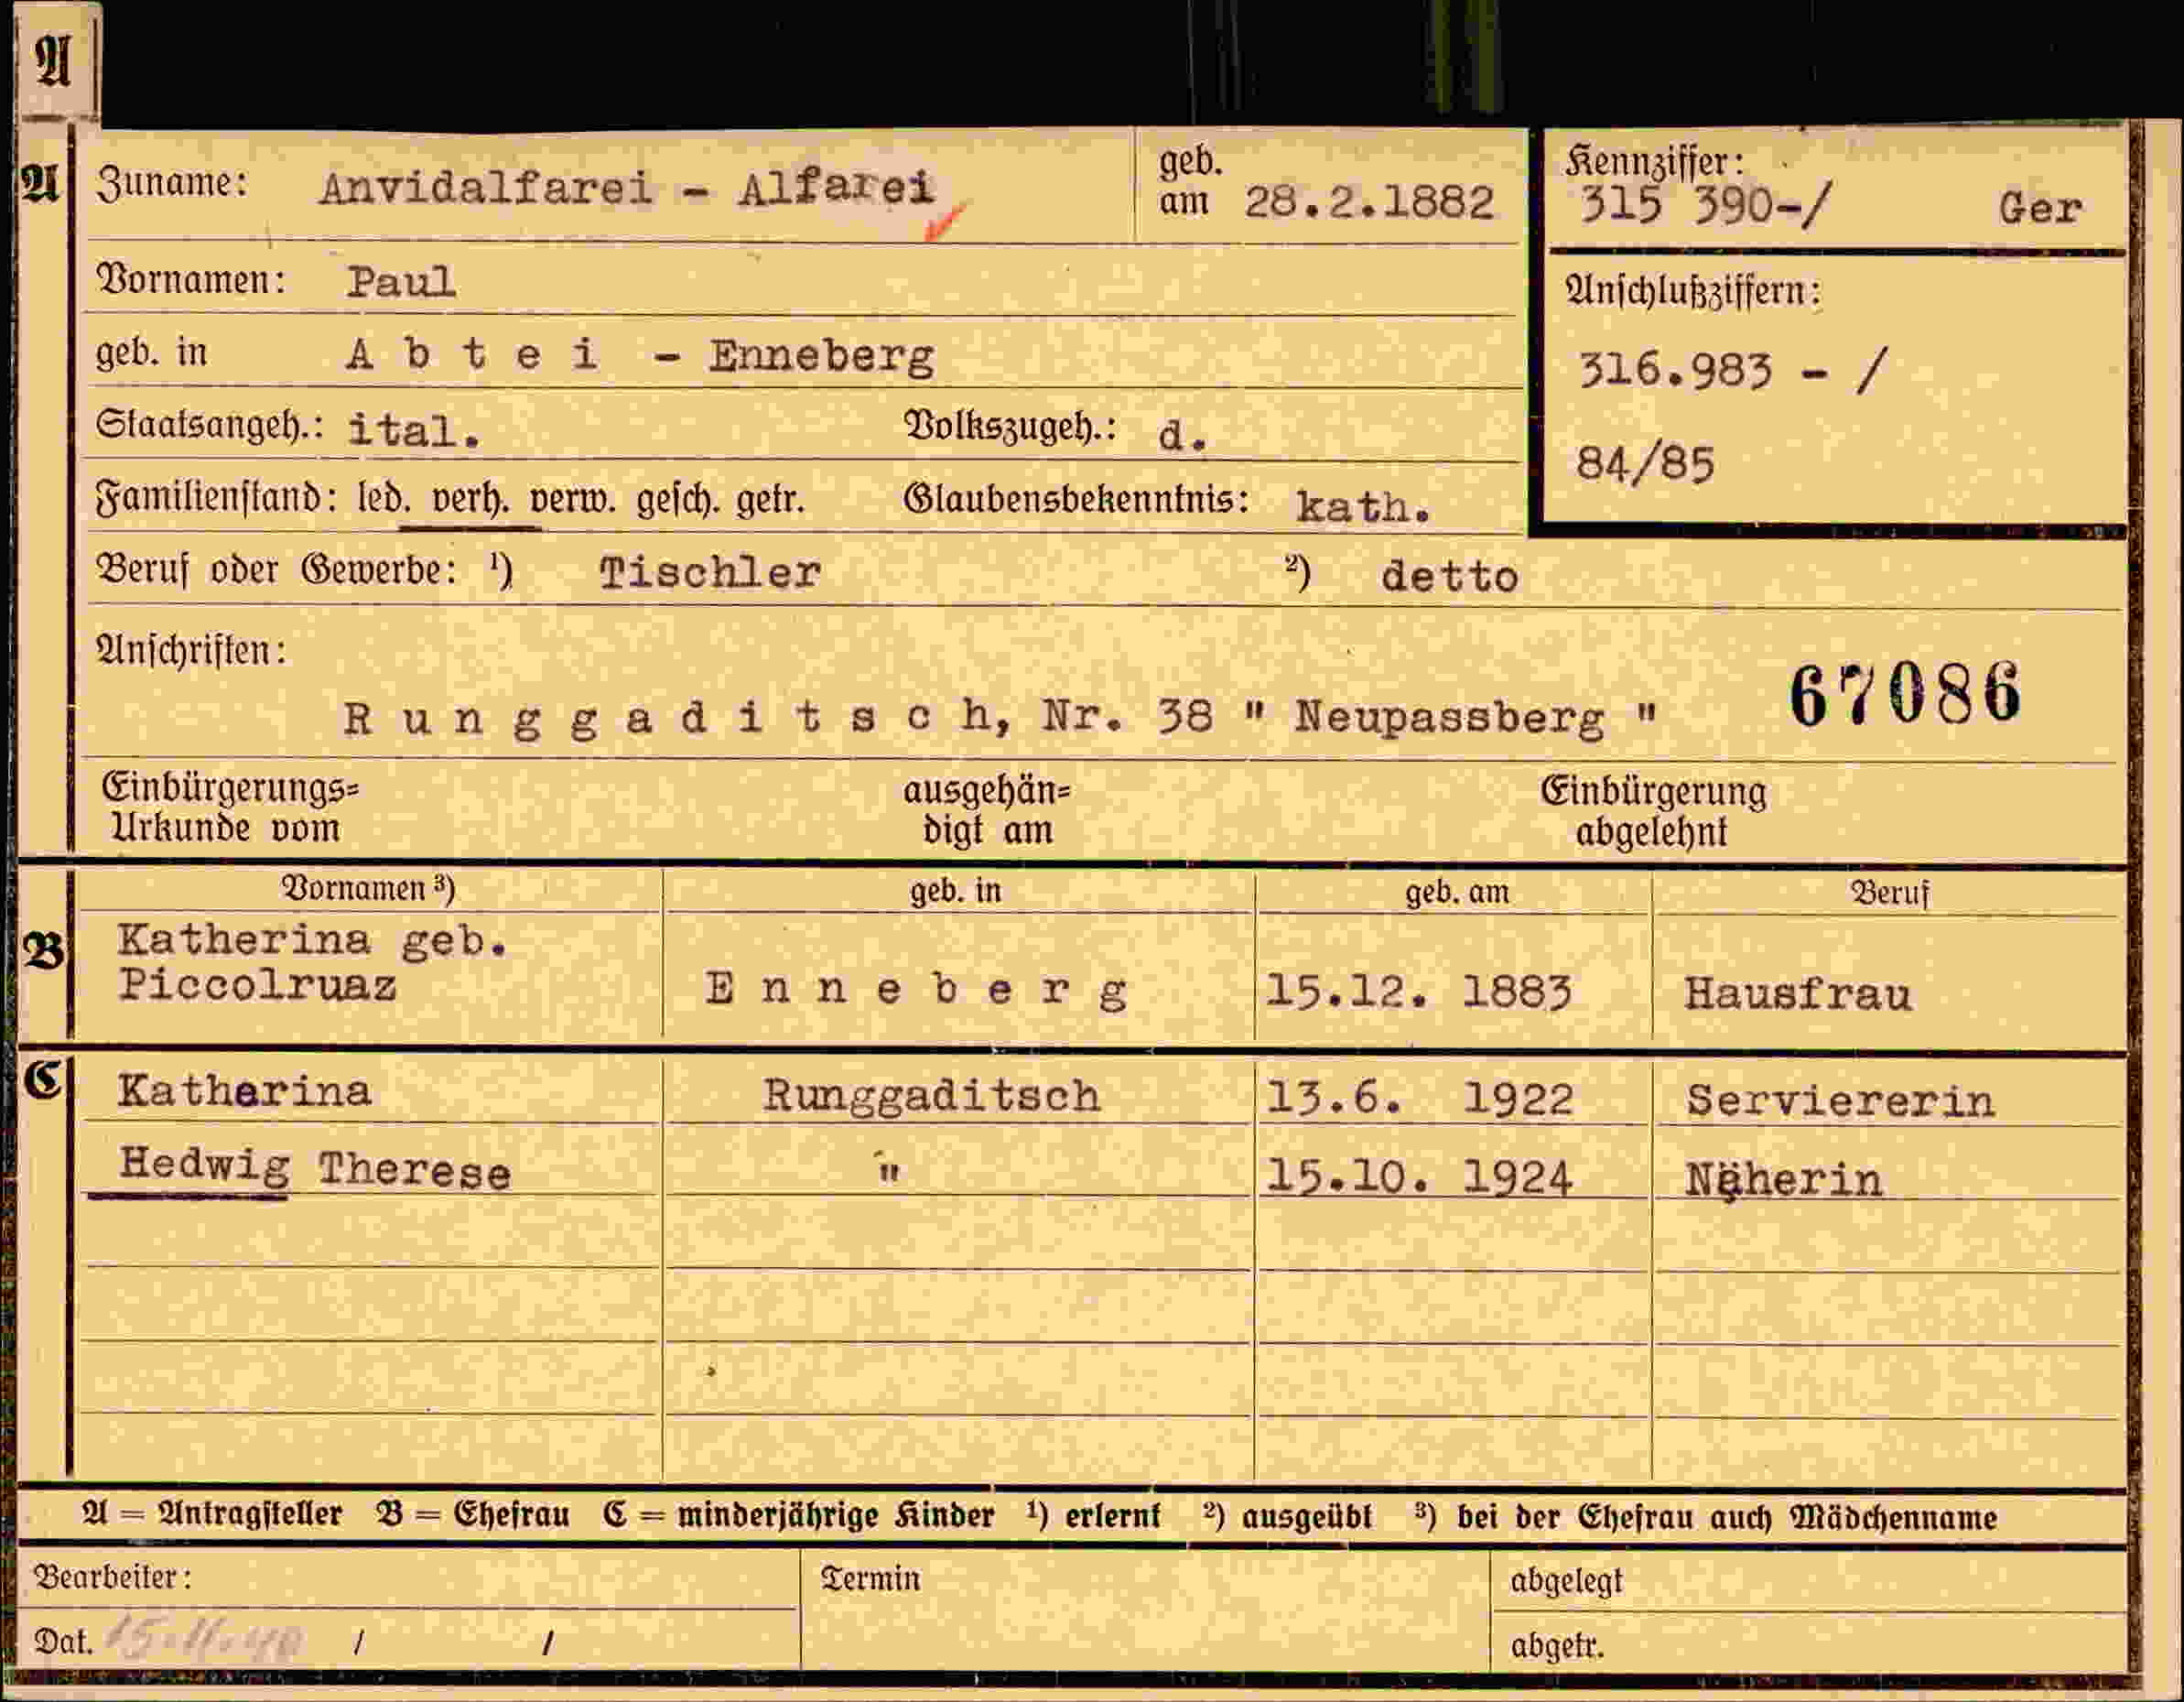 A
A Zuname: Anvidalfarei - Alfarei geb. am 28.2.1882
Kennziffer: 315 390-/ Ger
Vornamen: Paul
Anschlußziffern:
geb. in A b t e i - Enneberg
316.983 - /
Staatsangeh.: ital. Volkszugeh.: d.
84/85
Familienstand: led. verh. verw. gesch. getr. Glaubensbekenntnis: kath.
Beruf oder Gewerbe: ¹) Tischler ²) detto
Anschriften:
R u n g g a d i t s c h, Nr. 38 " Neupassberg " 67086
Einbürgerungs= ausgehän= Einbürgerung
Urkunde vom digt am abgelehnt
Vornamen ³) geb. in geb. am Beruf
B Katherina geb.
Piccolruaz E n n e b e r g 15.12. 1883 Hausfrau
C Katherina Runggaditsch 13.6. 1922 Serviererin
Hedwig Therese " 15.10. 1924 Näherin
A = Antragsteller B = Ehefrau C = minderjährige Kinder ¹) erlernt ²) ausgeübt ³) bei der Ehefrau auch Mädchenname
Bearbeiter: Termin abgelegt
Dat. 15.11.40 / / abgetr.